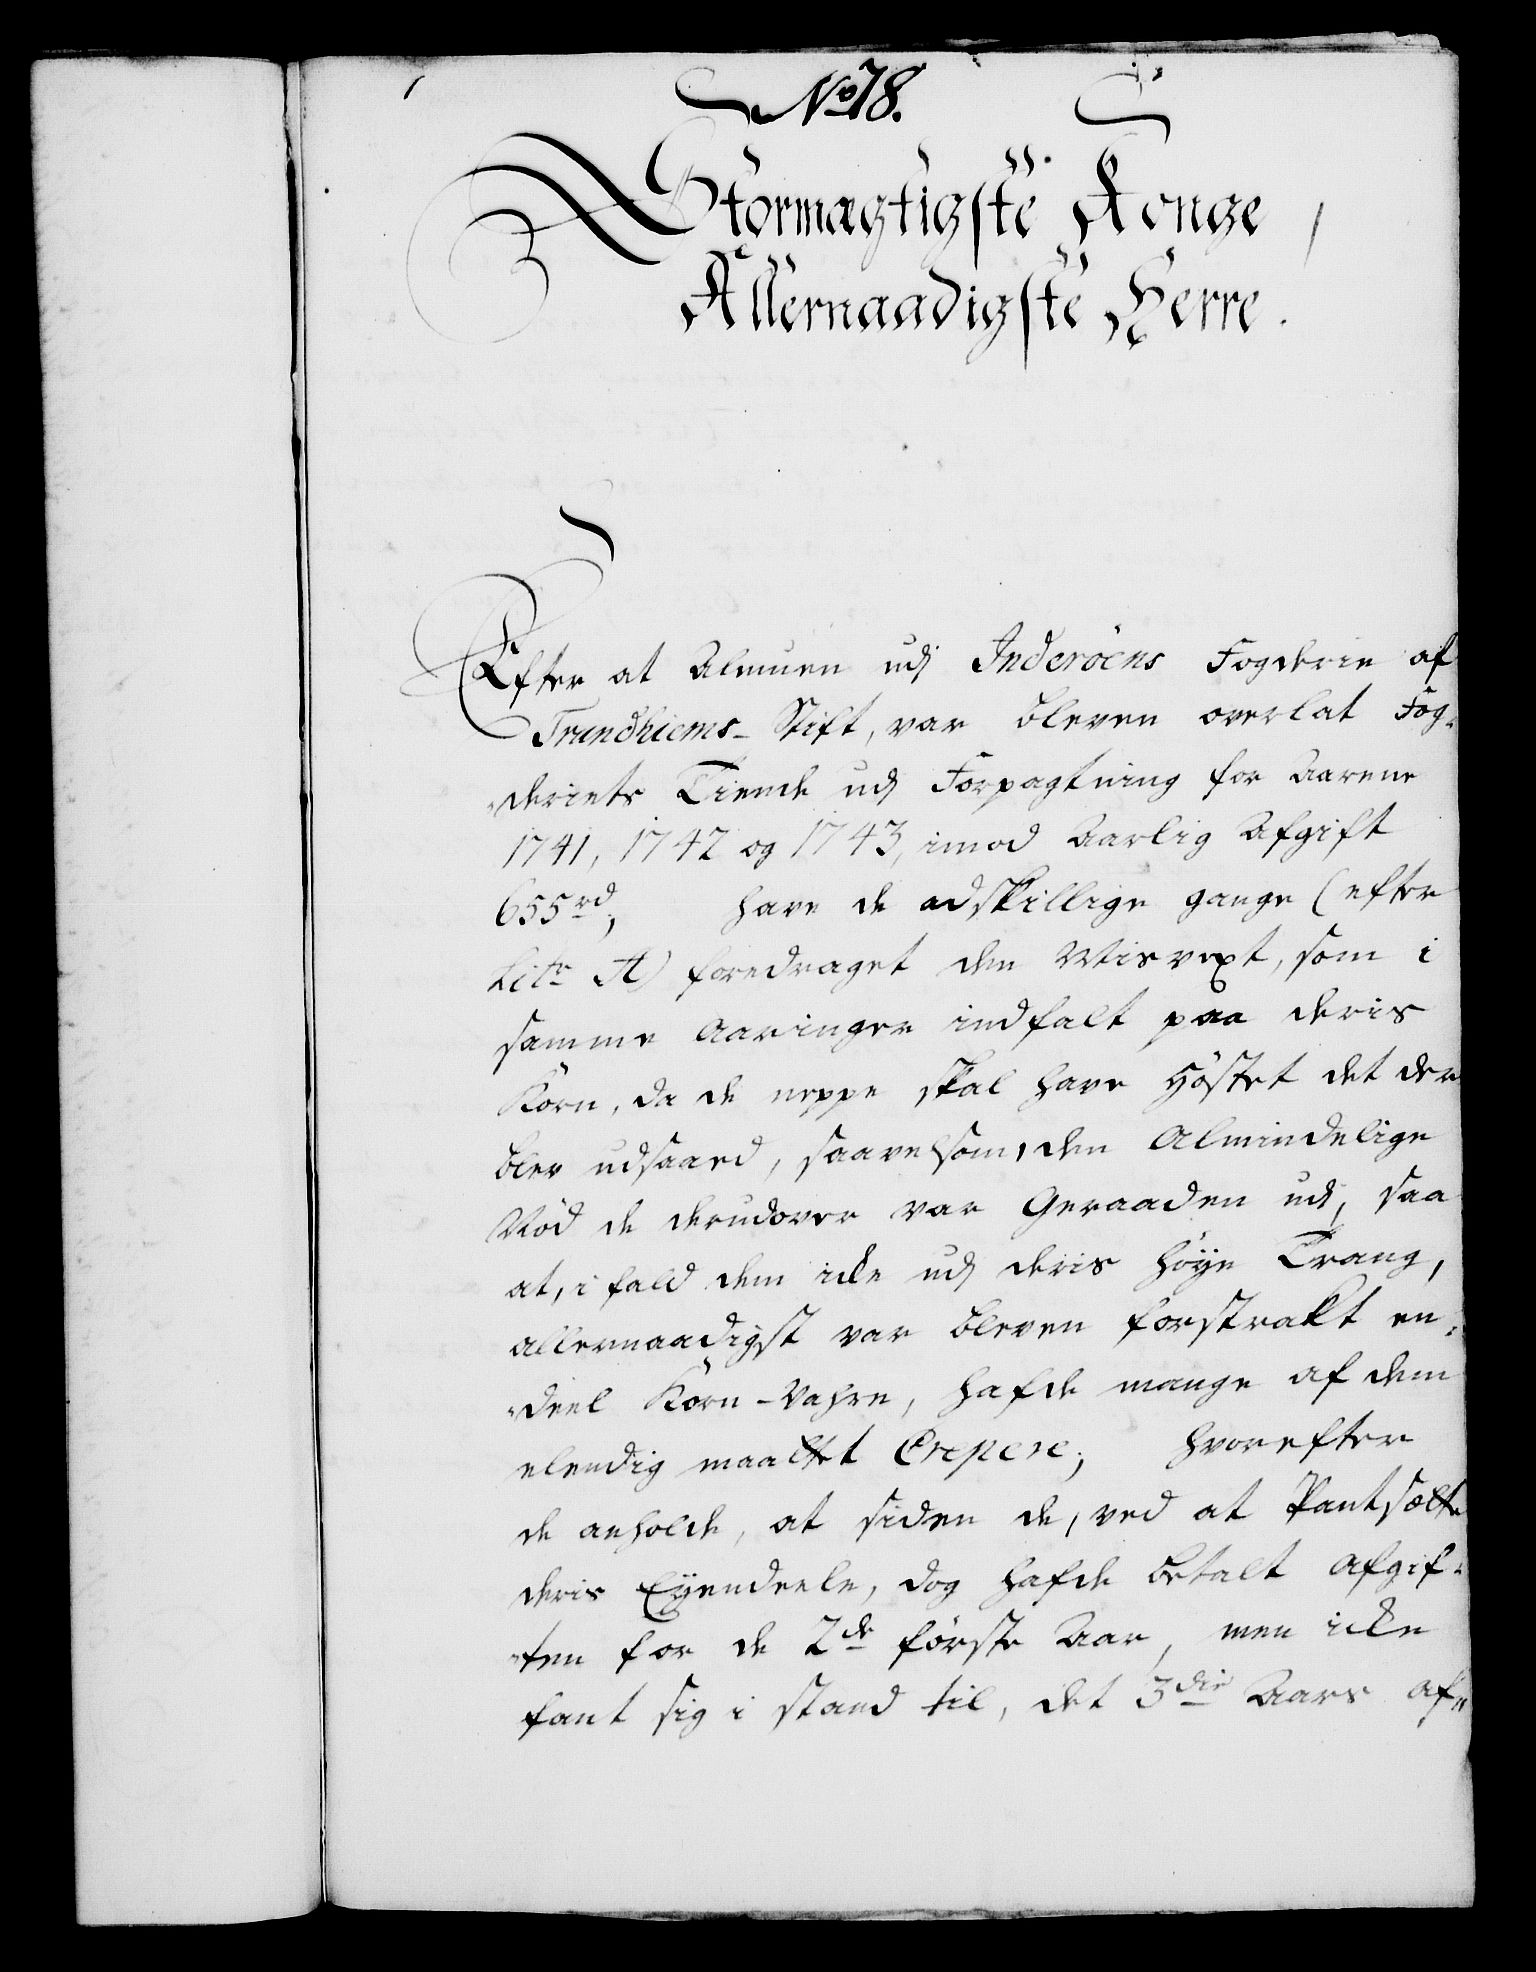 No 78.
Stormægtigste Konge
Allernaadigste Herre.
Efter at Almuen udj Inderöens Fogderie af
Trundhiems-Stift, var bleven overlat Fog-
deriets Tiende udj Forpagtning for Aarene
1741, 1742 og 1743, imod Aarlig Afgift
655 rd, have de adskillige gange (efter
Litr A) foredraget den Misvext, som i
samme Aaringer indfalt paa deris
Korn, da de neppe skal have höstet det der
blev udsaaed, saavelsom, den Almindelige
Nöd de derudover var Geraaden udj, saa
at, i fald dem icke udj deris höye Trang,
allernaadigst var bleven forstrakt en-
deel Korn-Vahre, hafde mange af dem
elendig maattet Crepere; hvorefter
de anholde, at siden de, ved at Pantsætte
deris Eyendeele, dog hafde betalt Afgif-
ten for de 2de förste Aar, men icke
fant sig i stand til, det 3die Aars af-